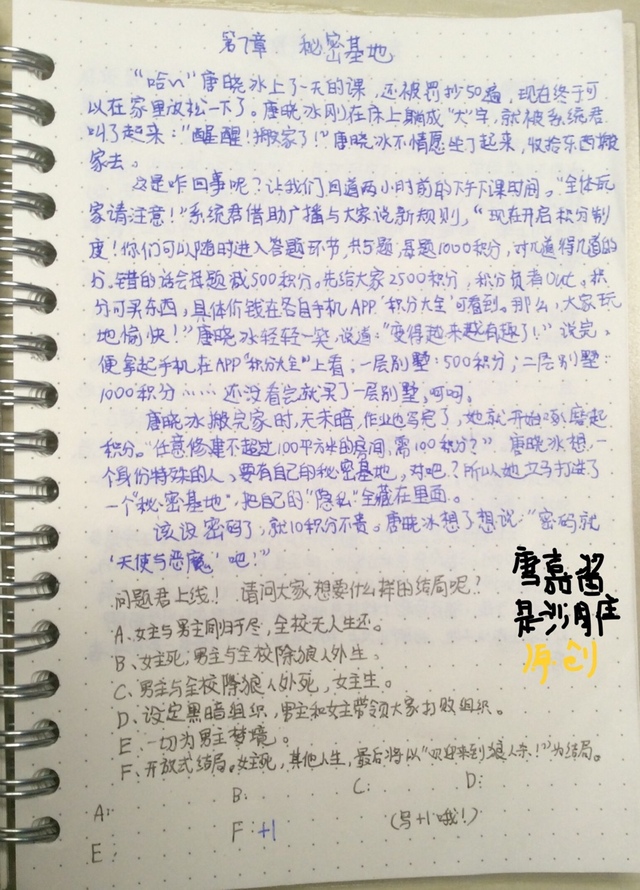 第7章 秘密基地
“哈~”唐晓冰上了一天的课，还被罚抄50遍，现在终于可
以在家里放松一下了。唐晓冰刚在床上躺成“大”字，就被系统君
叫了起来：“醒醒！搬家了！”唐晓冰不情愿坐了起来，收拾东西搬
家去。
这是咋回事呢？让我们回道两小时前的下午下课时间。“全体玩
家请注意！”系统君借助广播与大家说新规则，“现在开启积分制
度！你们可以随时进入答题环节，共5题，每题1000积分，对几道得几道的
分。错的话会每题裁500积分。先给大家2500积分，积分负者Out。积
分可买东西，具体价钱在各自手机APP‘积分大全’可看到。那么，大家玩
地愉快！”唐晓冰轻轻一笑，说道：“变得越来越有趣了！”说完，
便拿起手机在APP“积分大全”上看：一层别墅：500积分；二层别墅：
1000积分……还没看完就买了一层别墅，呵呵。
唐晓冰搬完家时，天未暗，作业也写完了，她就开始琢磨起
积分。“任意修建不超过100平方米的房间，需100积分？”唐晓冰想，一
个身份特殊的人，要有自己的秘密基地，对吧？所以她立马打进了
一个“秘密基地”，把自己的“隐私”全藏在里面。
该设密码了，就10积分不贵。唐晓冰想了想说：“密码就
‘天使与恶魔’吧！”
问题君上线！请问大家，想要什么样的结局呢？
A、女主与男主同归于尽，全校无人生还。
B、女主死，男主与全校除狼人外生。
C、男主与全校除狼人外死，女主生。
D、设定黑暗组织，男主和女主带领大家打败组织。
E、一切为男主梦境。
F、开放式结局。女主死，其他人生，最后将以“欢迎来到狼人杀！”为结局。
A： B： C： D：
E： F：+1 （写+1哦！）
唐嘉酱
是沙月庄
原创